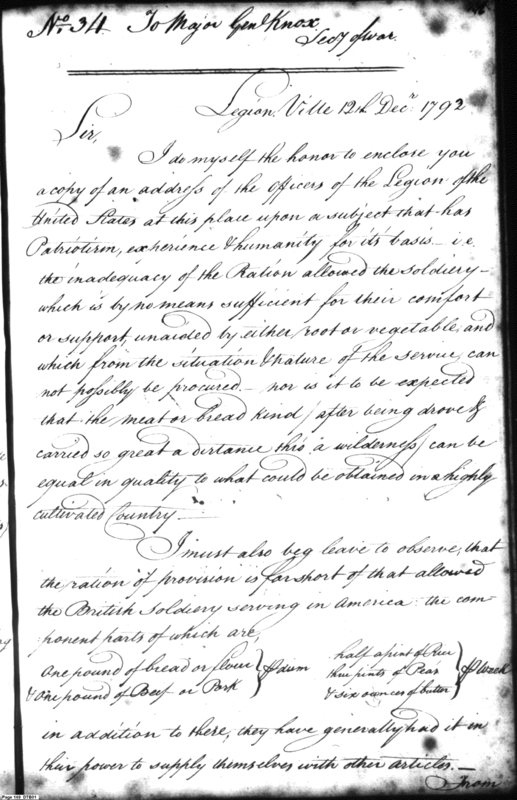 No. 34. To Major Genl. Knox
Secy of war.
Legion Ville 12th. Decr. 1792
Sir,
I do myself the honor to enclose you
a copy of an address of the officers of the Legion of the
United States at this place upon a subject that has
Patriotism, experience & humanity for its basis— i.e.
the inadequacy of the Ration allowed the soldiery—
which is by no means sufficient for their comfort
or support, unaided by either root or vegetable, and
which from the situation & nature of the service, can
not possibly be procured— nor is it to be expected
that the meat or bread kind (after being drove &
carried so great a distance thro' a wilderness) can be
equal in quality to what could be obtained in a highly
cultivated Country—
I must also beg leave to observe, that
the ration of provision is far short of that allowed
the British Soldiery serving in America: the com-
ponent parts of which are,
One pound of bread or flour
& One pound of Beef or Pork
} ⅌ diem
half a pint of Rice
three pints of Peas
& six ounces of butter
} ⅌ Week
in addition to these, they have generally had it in
their power to supply themselves with other articles.—
From
Page 169 DTB01